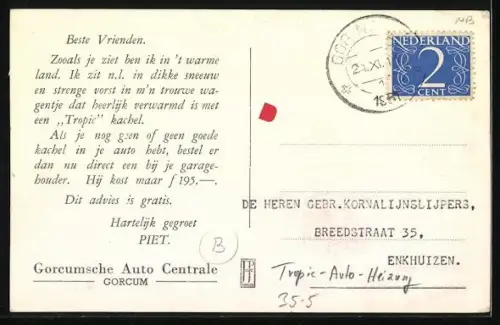 Beste Vrienden.
Zooals je ziet ben ik in 't warme
land. Ik zit n.l. in dikke sneeuw
en strenge vorst in m'n trouwe wa-
gentje dat heerlijk verwarmd is met
een „Tropic" kachel.
Als je nog geen of geen goede
kachel in je auto hebt, bestel er
dan nu direct een bij je garage-
houder. Hij kost maar f 195.—.
Dit advies is gratis.
Hartelijk gegroet
PIET.
B
Gorcumsche Auto Centrale
GORCUM
NB
NEDERLAND
2
CENT
DE HEREN GEBR.KORNALIJNSLIJPERS,
BREEDSTRAAT 35,
ENKHUIZEN.
Tropic-Auto-Heizung
35-5